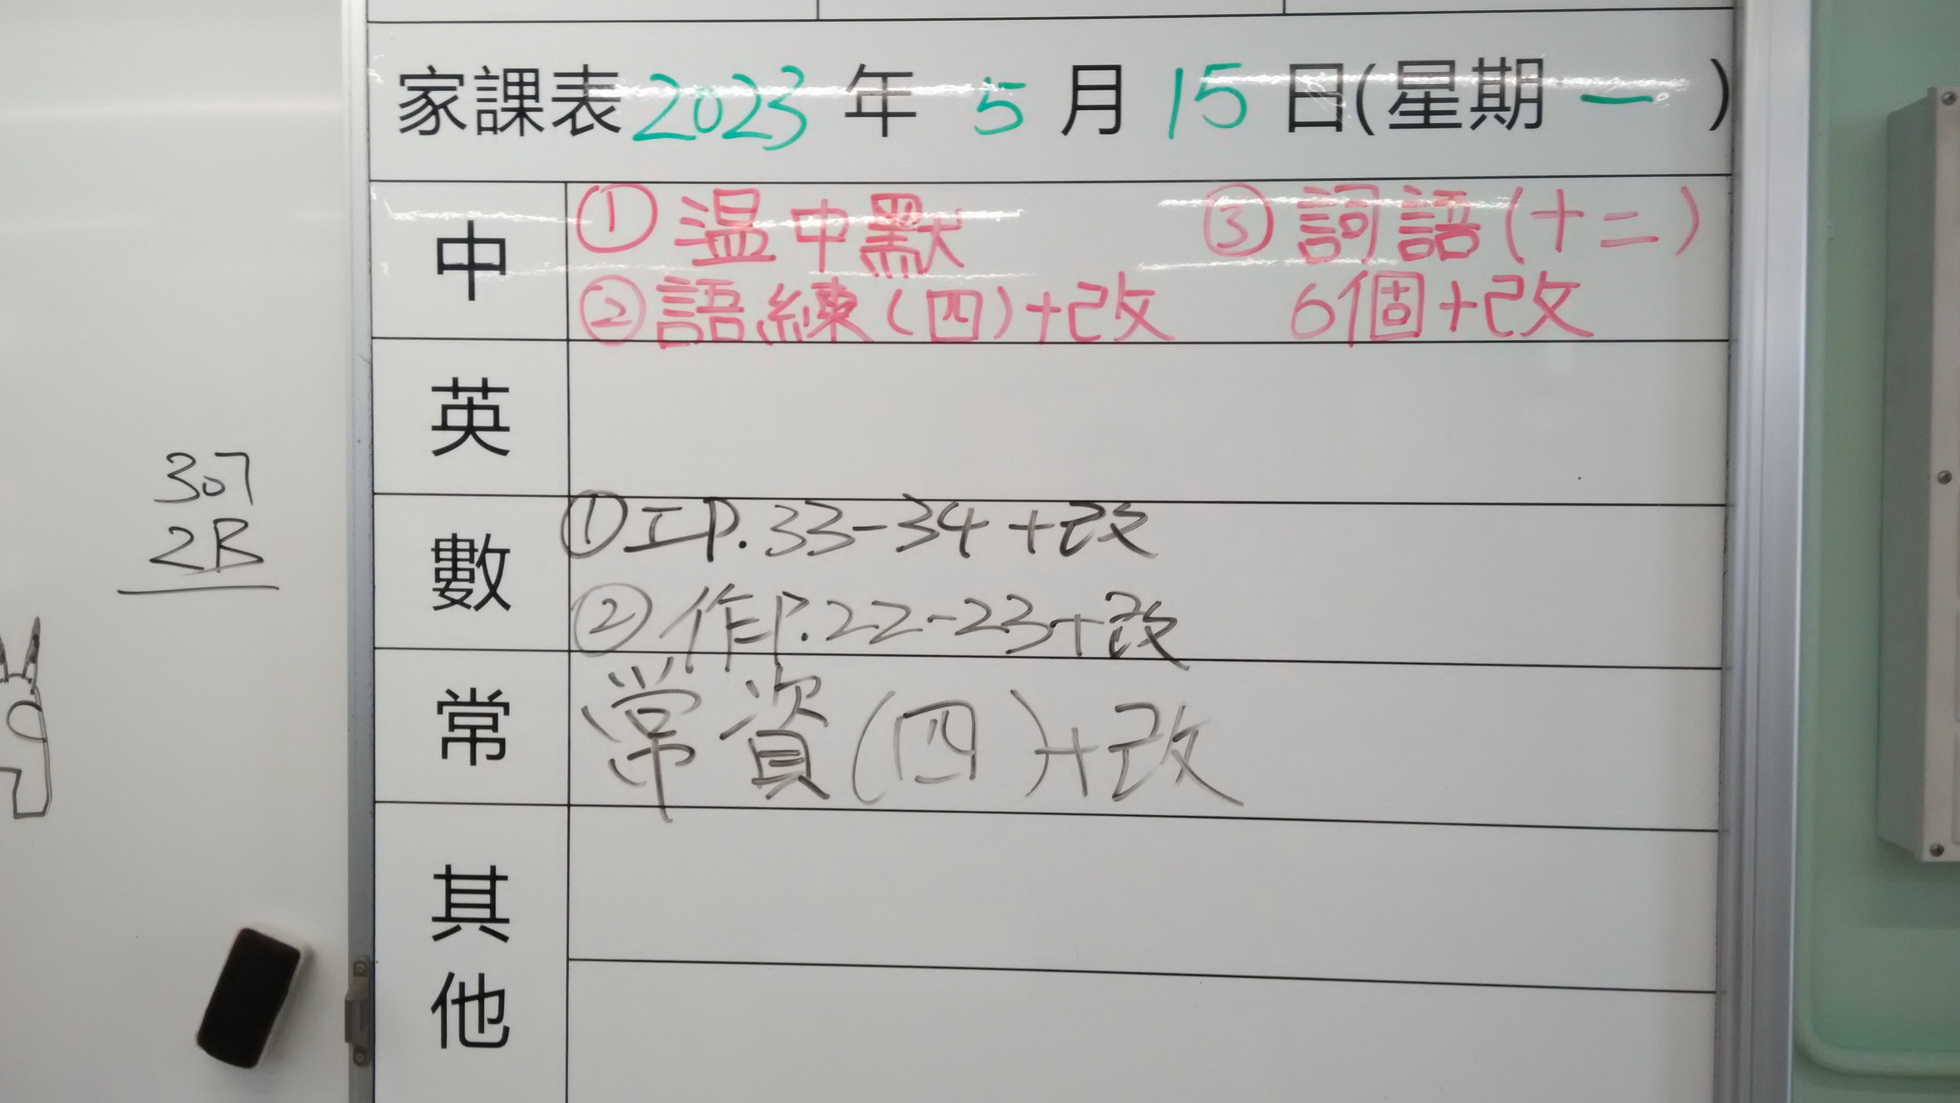 家課表 2023 年 5 月 15 日(星期 一 )
中
① 温中默
② 語練(四)+改
③ 詞語(十二)
6個+改
英
數
① 工P.33-34 +改
② 作P.22-23+改
常
常資(四)+改
其他
307
2B